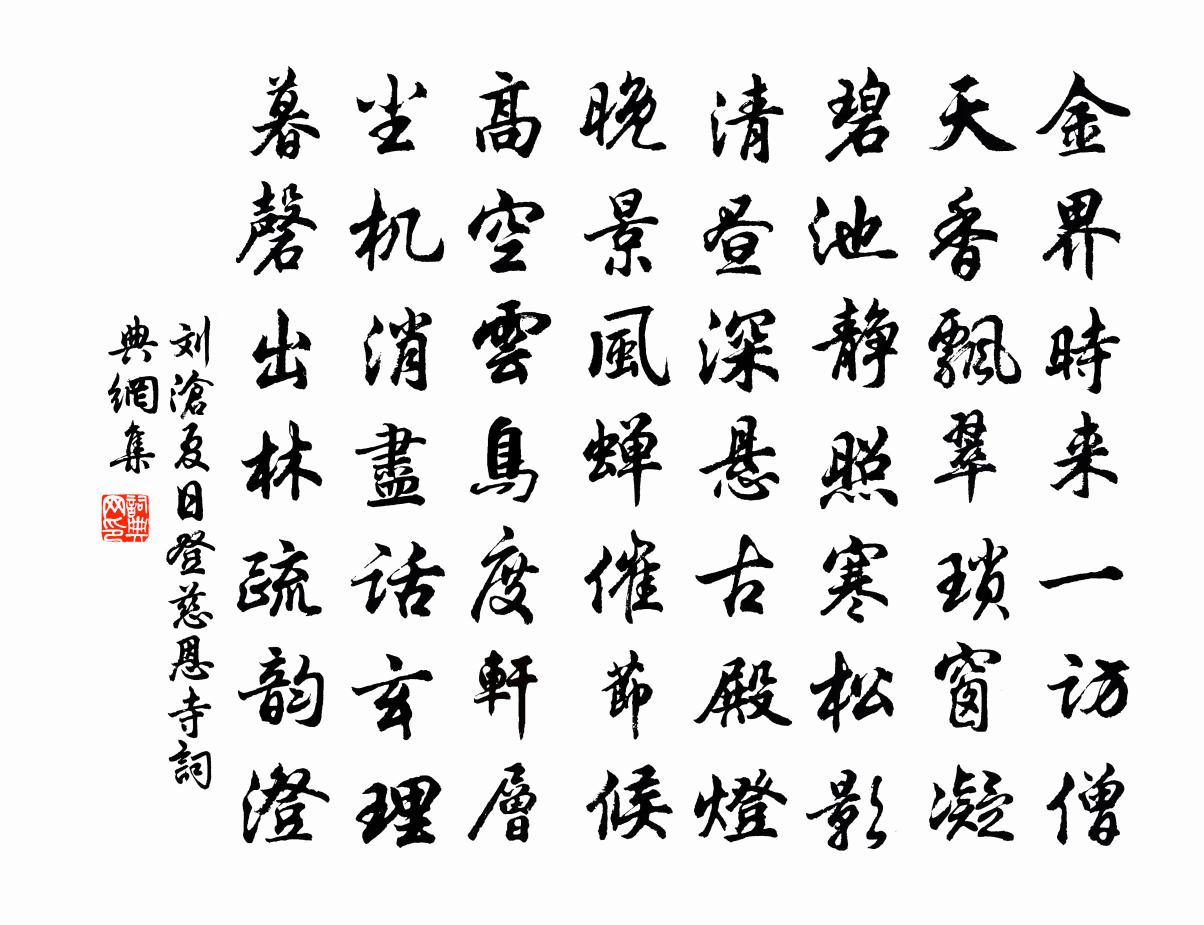 金界時来一访僧
天香飄翠琐窗凝
碧池静照寒松影
清昼深悬古殿燈
晚景風蝉催節候
高空雲鳥度軒層
尘机消盡话玄理
暮磬出林疏韵澄
刘滄夏日登慈恩寺詞
典網集
詞典网印